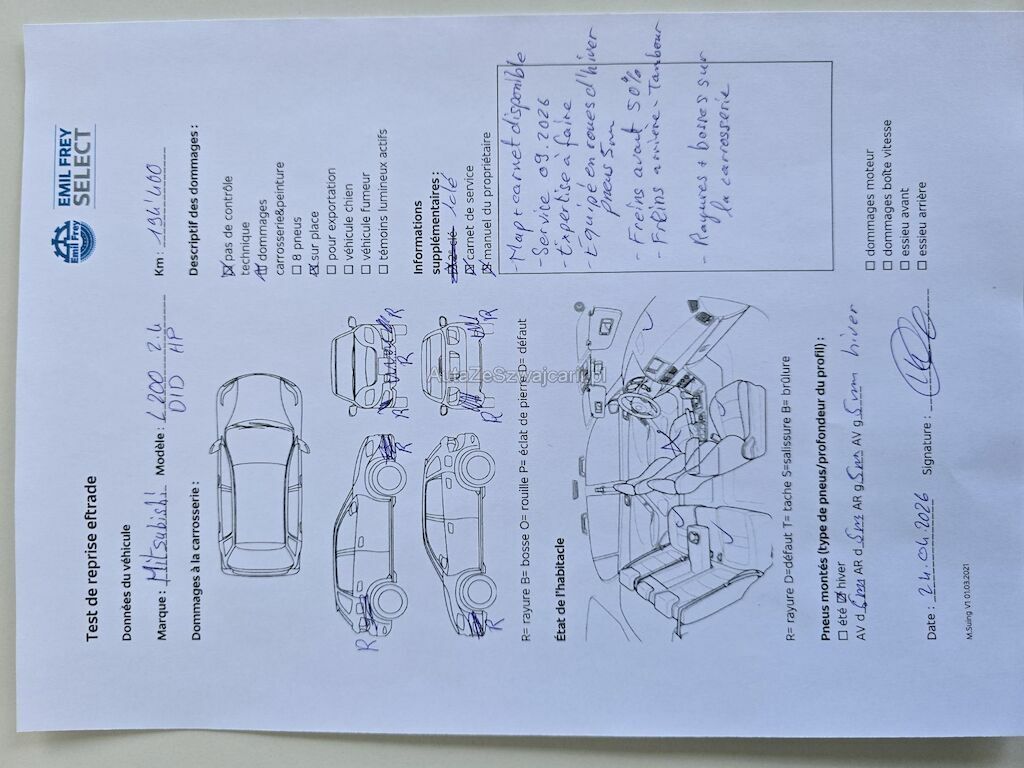 Test de reprise eftrade
Emil Frey
EMIL FREY
SELECT
Données du véhicule
Marque : Mitsubishi Modèle : L200 2.4 Km : 194'400
DID HP
Dommages à la carrosserie :
R
R
R
R
R
R
R
R= rayure B= bosse O= rouille P= éclat de pierre D= défaut
Descriptif des dommages :
☒ pas de contrôle
technique
☒ dommages
carrosserie&peinture
☐ 8 pneus
☒ sur place
☐ pour exportation
☐ véhicule chien
☐ véhicule fumeur
☐ témoins lumineux actifs
Informations
supplémentaires :
☒ 2 clé 1 clé
☒ carnet de service
☒ manuel du propriétaire
- Map + carnet disponible
- Service 09.2026
- Expertise à faire
- Equipé en roues d'hiver
pneus 5mm
- Freins avant 50%
- Freins arrière - Tambour
- Rayures + bosses sur
la carrosserie
État de l'habitacle
R= rayure D=défaut T= tache S=salissure B= brûlure
Pneus montés (type de pneus/profondeur du profil) :
☐ été ☒ hiver
AV d 5mm AR d 5mm AR g 5mm AV g 5mm hiver
☐ dommages moteur
☐ dommages boîte vitesse
☐ essieu avant
☐ essieu arrière
Date : 24.04.2026 Signature :
M.Suing V1 01.03.2021
AutaZeSzwajcarii.pl